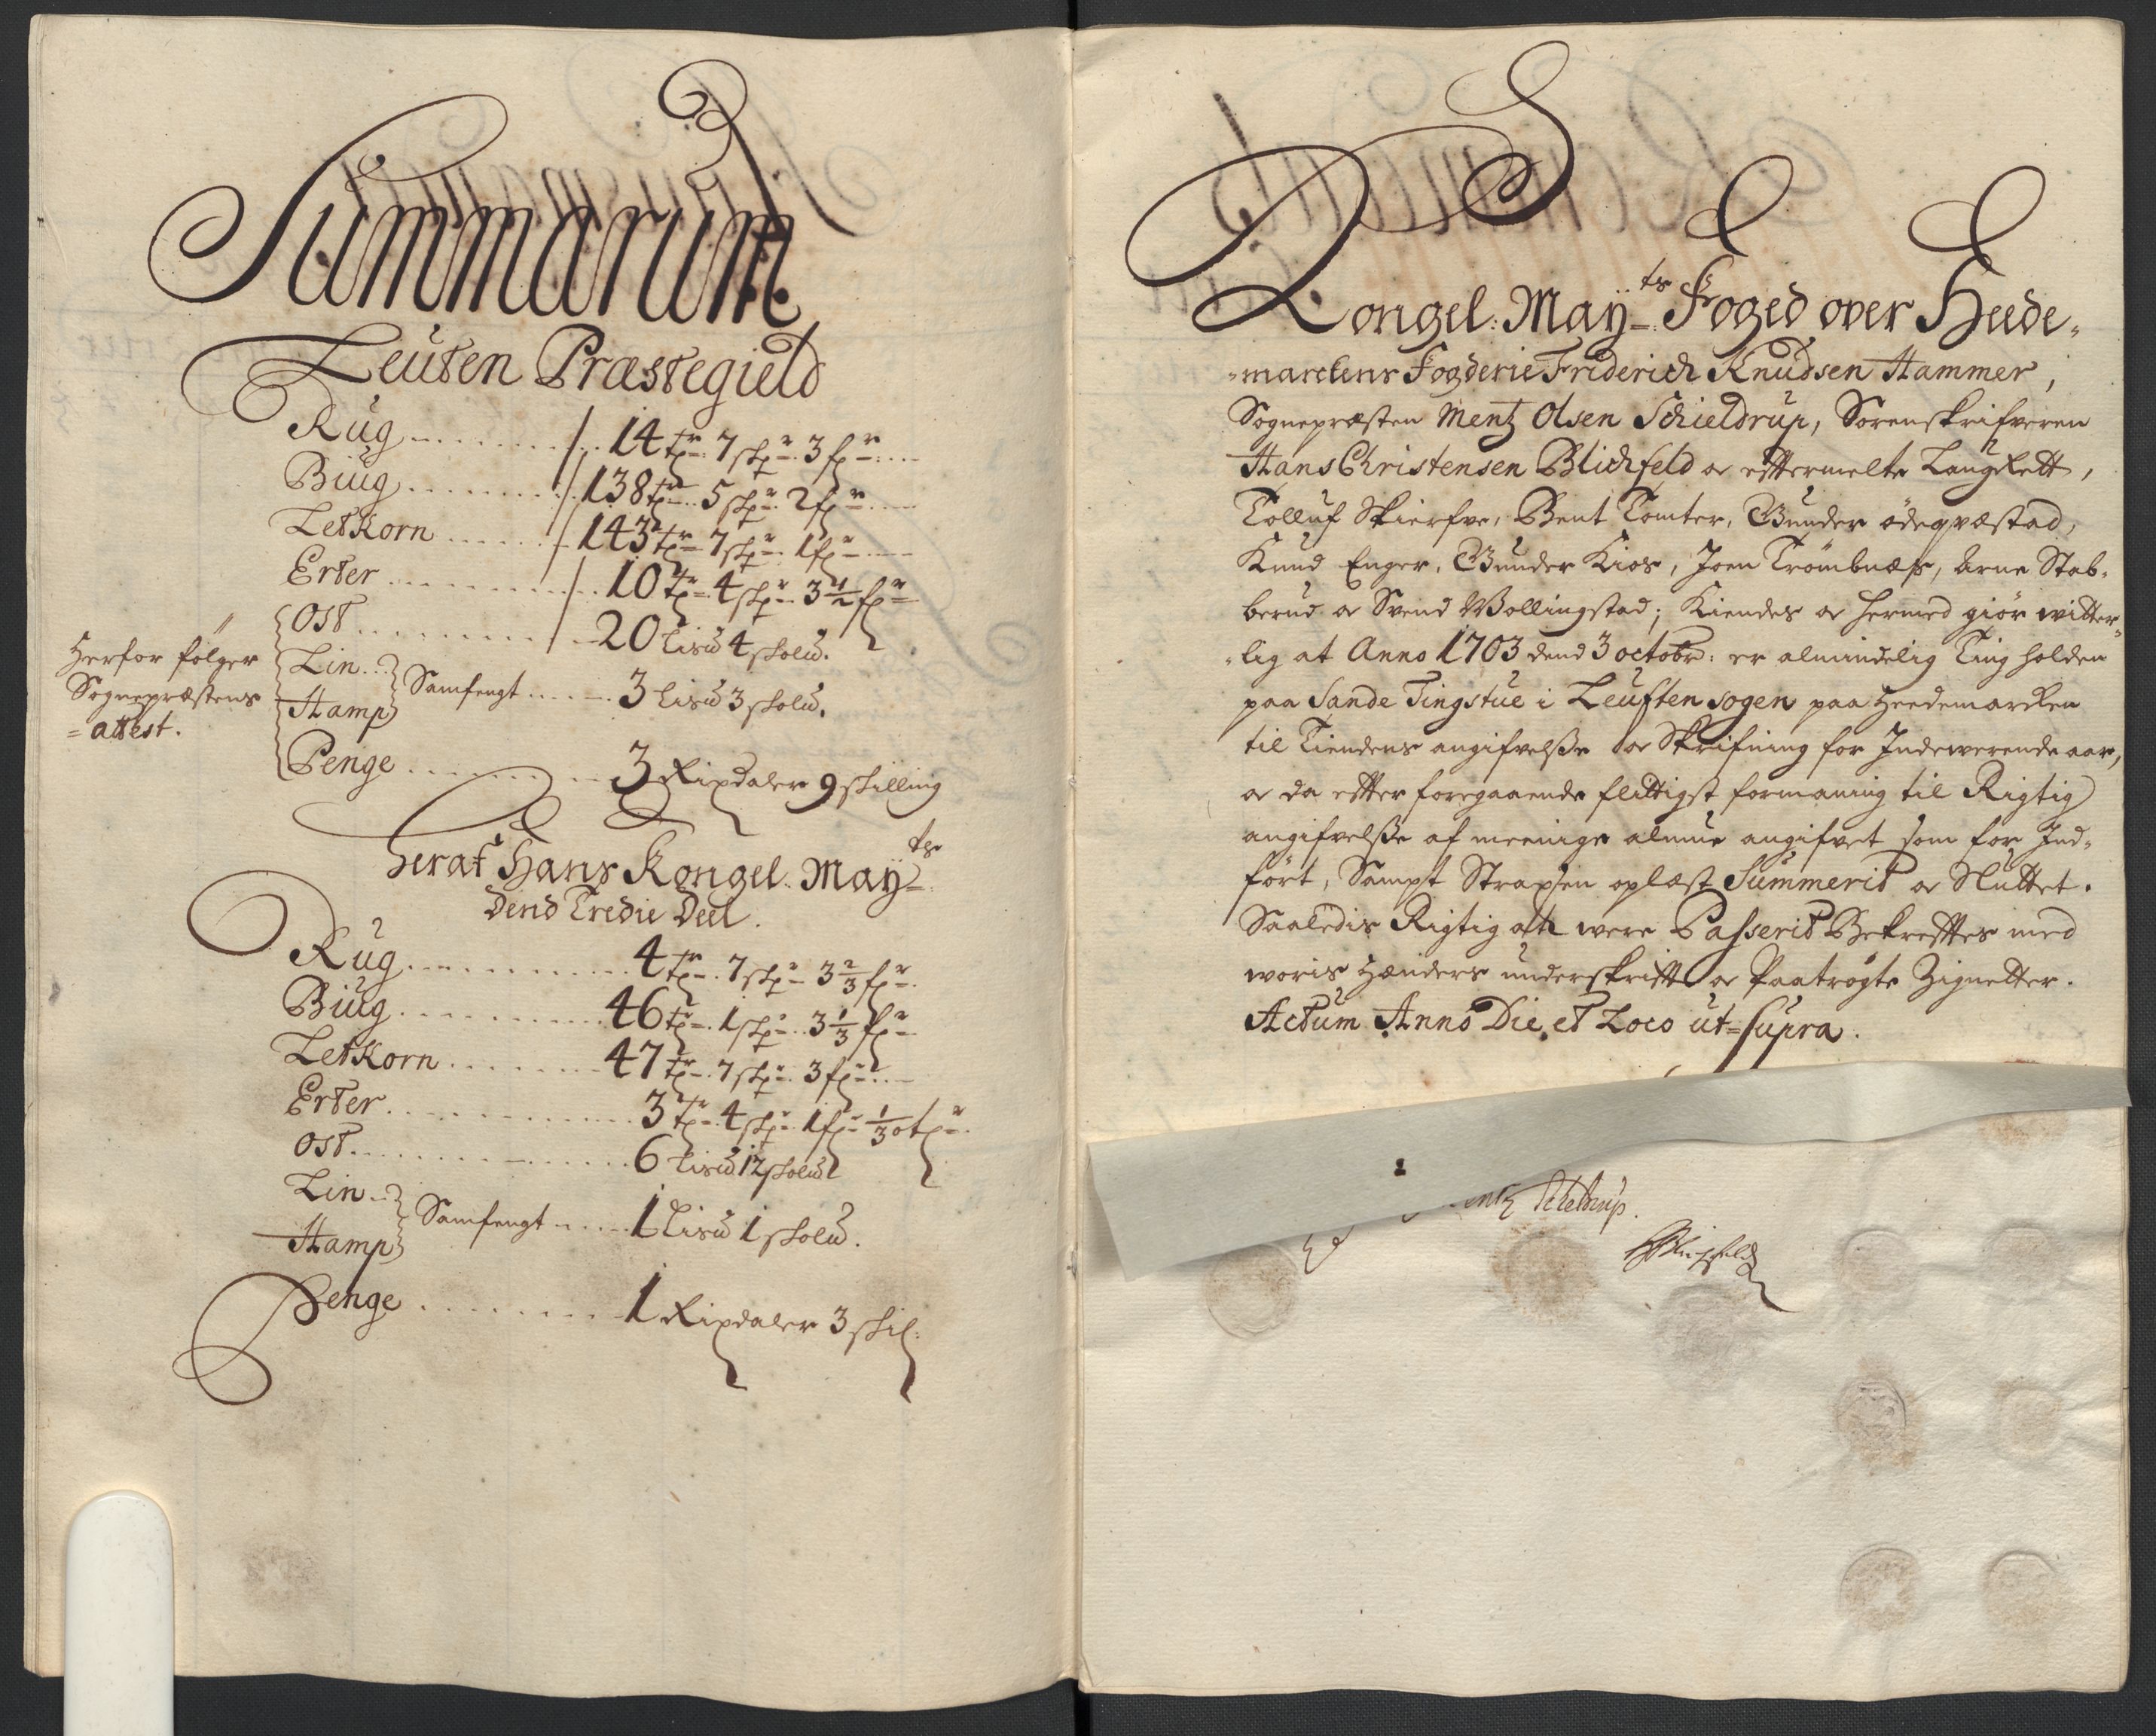 Summarum
Leuten Præstegield
Rug ........ 14 tr 7 skpr 3 fr
Biug ....... 138 tr 5 skpr 2 fr
LetKorn ...... 143 tr 7 skpr 1 fr
Erter ........ 10 tr 4 skpr 3 1/2 fr
Ost ........ 20 Lisd 4 skold.
Lin ..
Hamp Samfengt ..... 3 Lisd 3 skold.
Penge ........ 3 Rixdaler 9 skilling
Herfor følger
Sognepræstens
attest.
Heraf Hans Kongel: Mayts
Dend Tredie Deel.
Rug ........ 4 tr 7 skpr 3 2/3 fr
Biug ........ 46 tr 1 skpr 3 1/3 fr
LetKorn ....... 47 tr 7 skpr 3 fr
Erter ........ 3 tr 4 skpr 1 fr 1/3 otr
Ost ........ 6 Lisd 12 skold
Lin ..
Hamp Samfengt ..... 1 Lisd 1 skold.
Penge ........ 1 Rixdaler 3 skil:
Kongel: Mayts Foged over Heede-
marckens Fogderie Friderich Knudsen Hammer,
Sognepræsten Mentz Olsen Schieldrup, Sorenskrifveren
Hans Christensen Blichfeld oc efftermelte Laugrett,
Tolluf Skierfve, Bent Tomter, Gunder ödeqvæstad,
Knud Enger, Gunder Kios, Joen Trömbnæs, Arne Stab-
berud oc Svend Wollingstad; Kiendes oc hermed giör witter-
lig at Anno 1703 dend 3 octobr: er almindelig Ting holden
paa Sande Tingstue i Leuften sogen paa Heedemarcken
til Tiendens angifvelsse oc Skrifning for Indeværende aar,
oc da effter foregaaende flittigst formaning til Rigtig
angifvelsse af meenige almue angifvet som for Ind-
fört, Sampt Strapsen oplæst Summerit oc Sluttet.
Saaledis Rigtig at were Passerit Bekrefftes med
woris Hænders underskrifft oc Paatrögte Zignetter.
Actum Anno Die et Loco ut=supra.
Schieldrup.
HBlichfeld